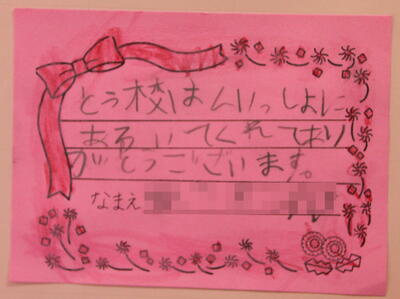 とう校はんいっしょに
あるいてくれてあり
がとうございます。
なまえ